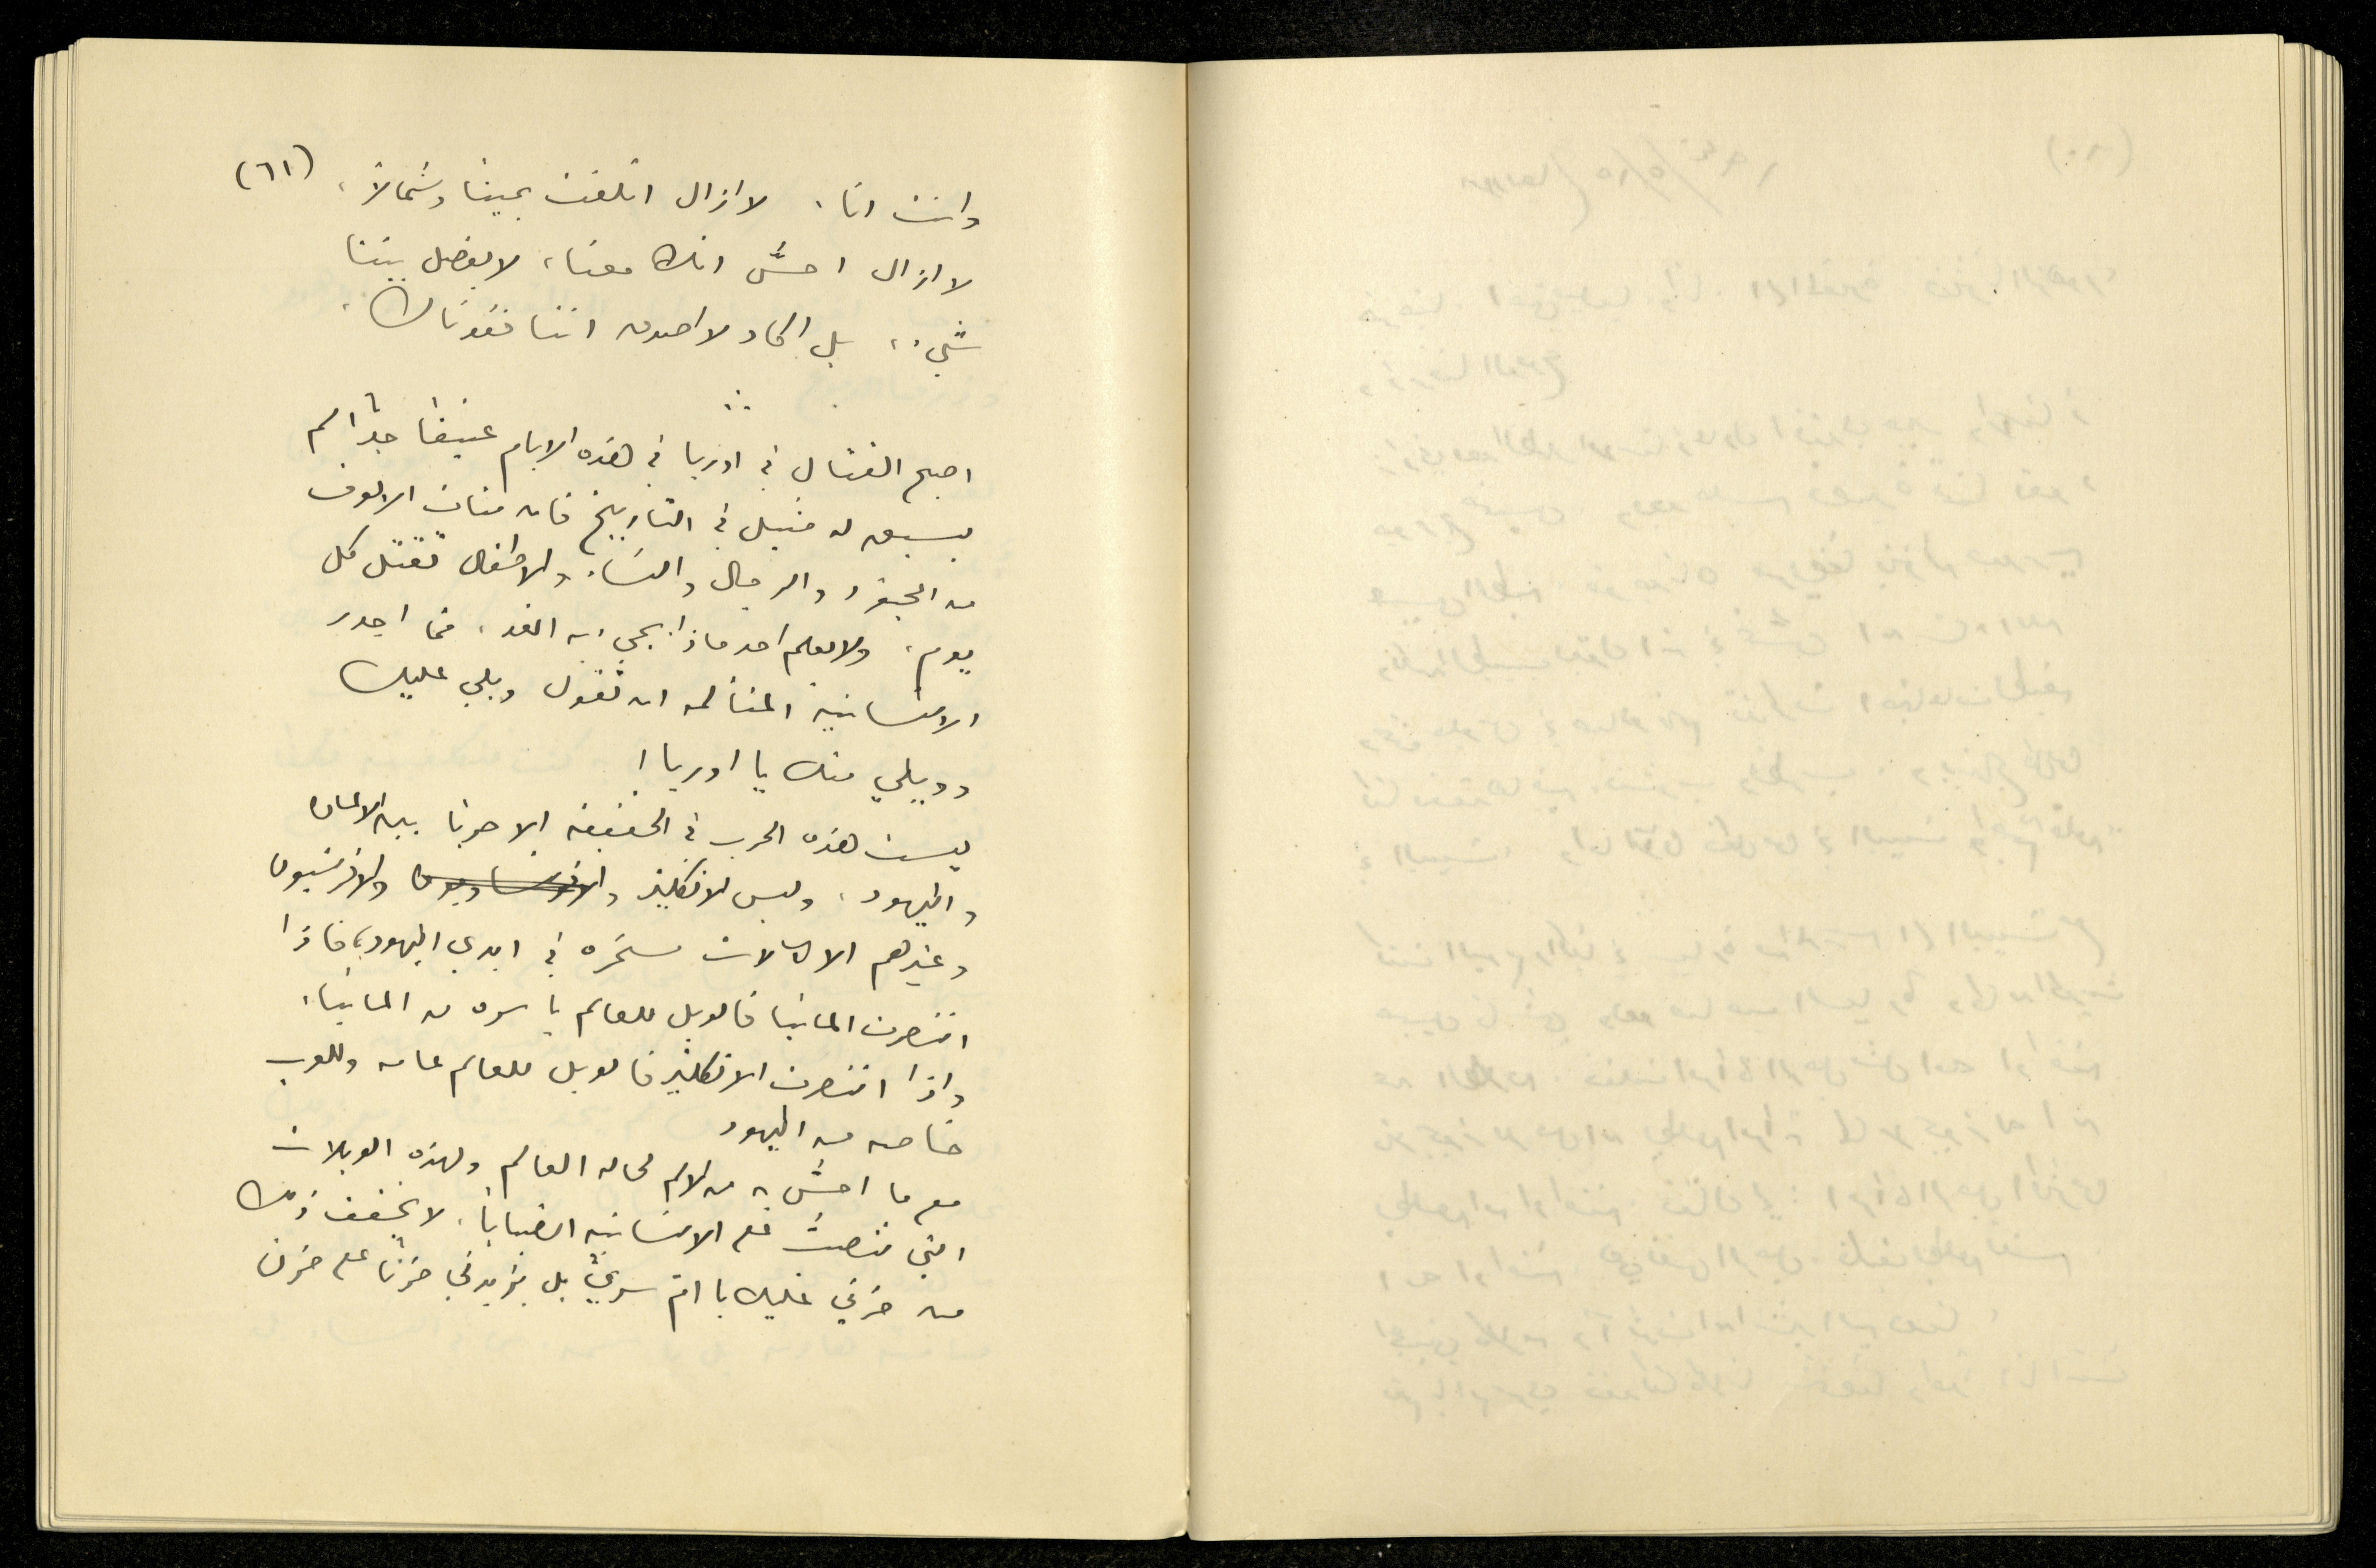 (٦١)
وانت انا. لا ازال اتلفت يمينا وشمالاً،
لا ازال احسُّ انك معنا، لا يفصل بيننا
شيء، بل اكاد لا اصدق اننا فقدناك.
اصبح القتال في اوربا في هذه الايام عنيفا جداً لم
يسبق له مثيل في التاريخ فان مئات الالوف
من الجنود والرجال والنساء والاطفال تقتل كل
يوم، ولا يعلم احد ماذا يجيء به الغد. فما اجدر
الانسانية المتألمه ان تقول ويلي عليك
وويلي منك يا اوربا!
ليست هذه الحرب في الحقيقه الا حربا بين الالمان
واليهود. وليس الانكليز والافرنسيون
وغيرهم الا الالات مسخره في ايدي اليهود، فاذا
انتصرت المانيا فالويل للعالم باسره من المانيا.
واذا انتصرت الانكليز فالويل للعالم عامه وللعرب
خاصه من اليهود
مع ما احسُّ به من الالم لحاله العالم ولهذه الويلات
التي على الانسانيه لا يخفف ذلك
من حزني عليك يا ام سري بل يزيدني حزنا على حزن